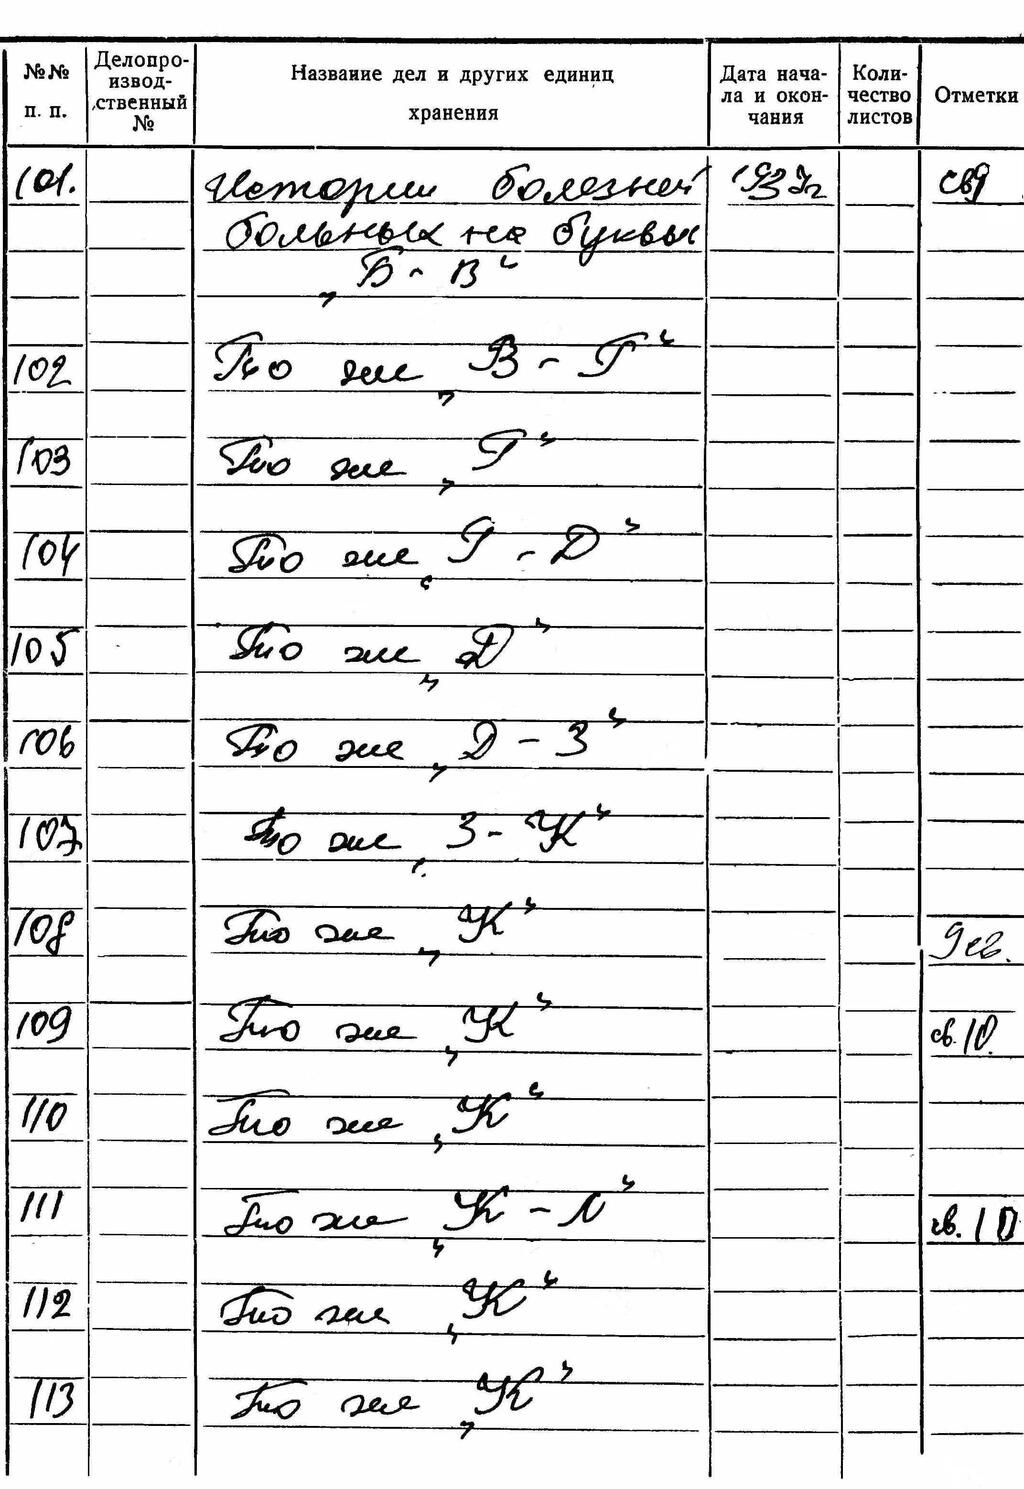 №№ п. п. Делопро-извод-ственный № Название дел и других единиц хранения Дата нача-ла и окон-чания Коли-чество листов Отметки
101. Истории болезней 1937г св9
больных на буквы
„Б - В"
102 То же „В - Г"
103 То же „Г"
104 То же „Г - Д"
105 То же „Д"
106 То же „Д - З"
107 То же „З - К"
108 То же „К" 9св.
109 То же „К" св.10.
110 То же „К"
111 То же „К - Л" св.10
112 То же „К"
113 То же „К"